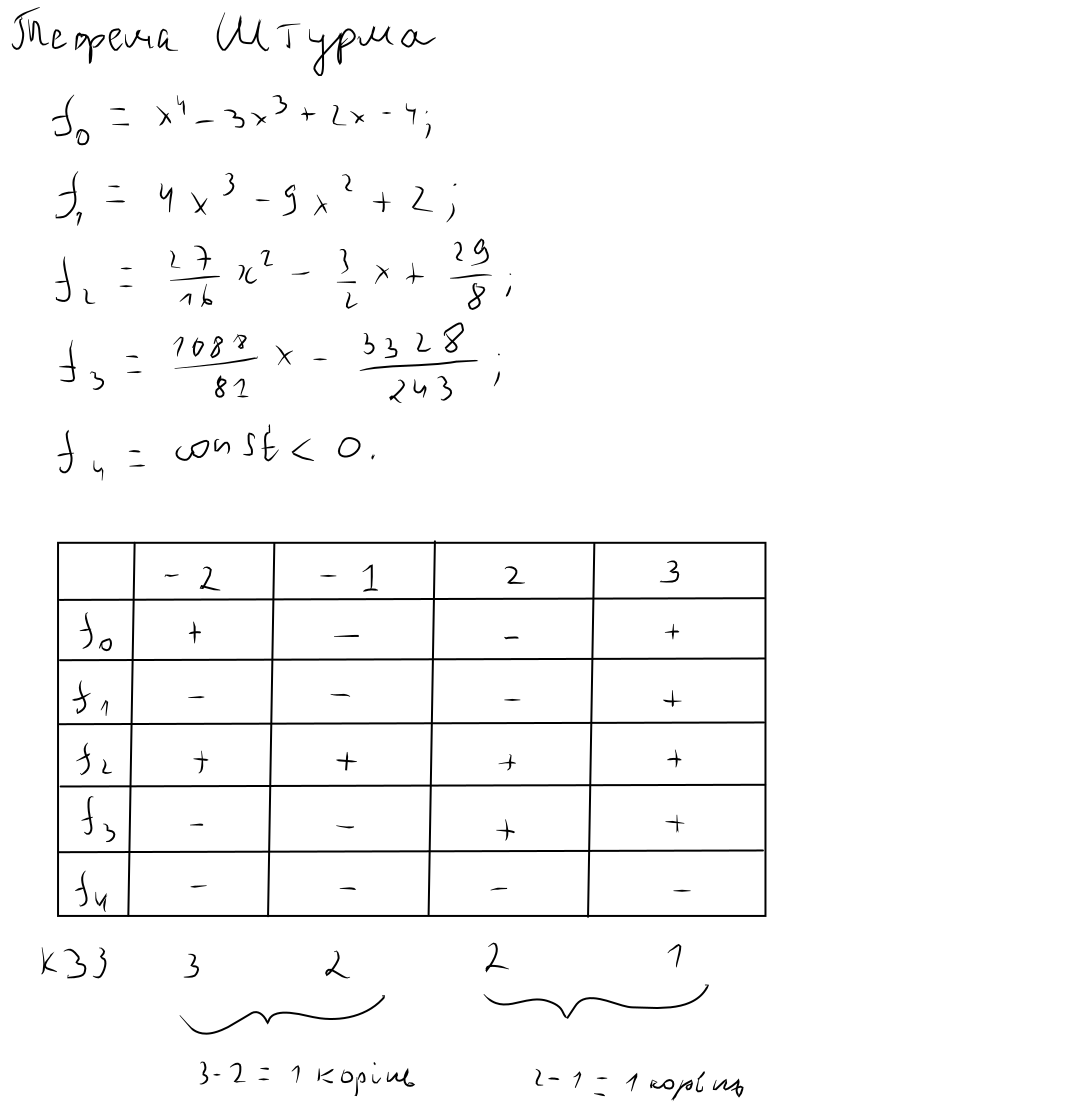 Теорема Штурма
f₀ = x⁴ - 3x³ + 2x - 4;
f₁ = 4x³ - 9x² + 2;
f₂ = 27/16 x² - 3/2 x + 29/8;
f₃ = 1088/81 x - 3328/243;
f₄ = const < 0.
- 2 - 1 2 3
f₀ + - - +
f₁ - - - +
f₂ + + + +
f₃ - - + +
f₄ - - - -
КЗЗ 3 2 2 1
3-2 = 1 корінь 2-1 = 1 корінь